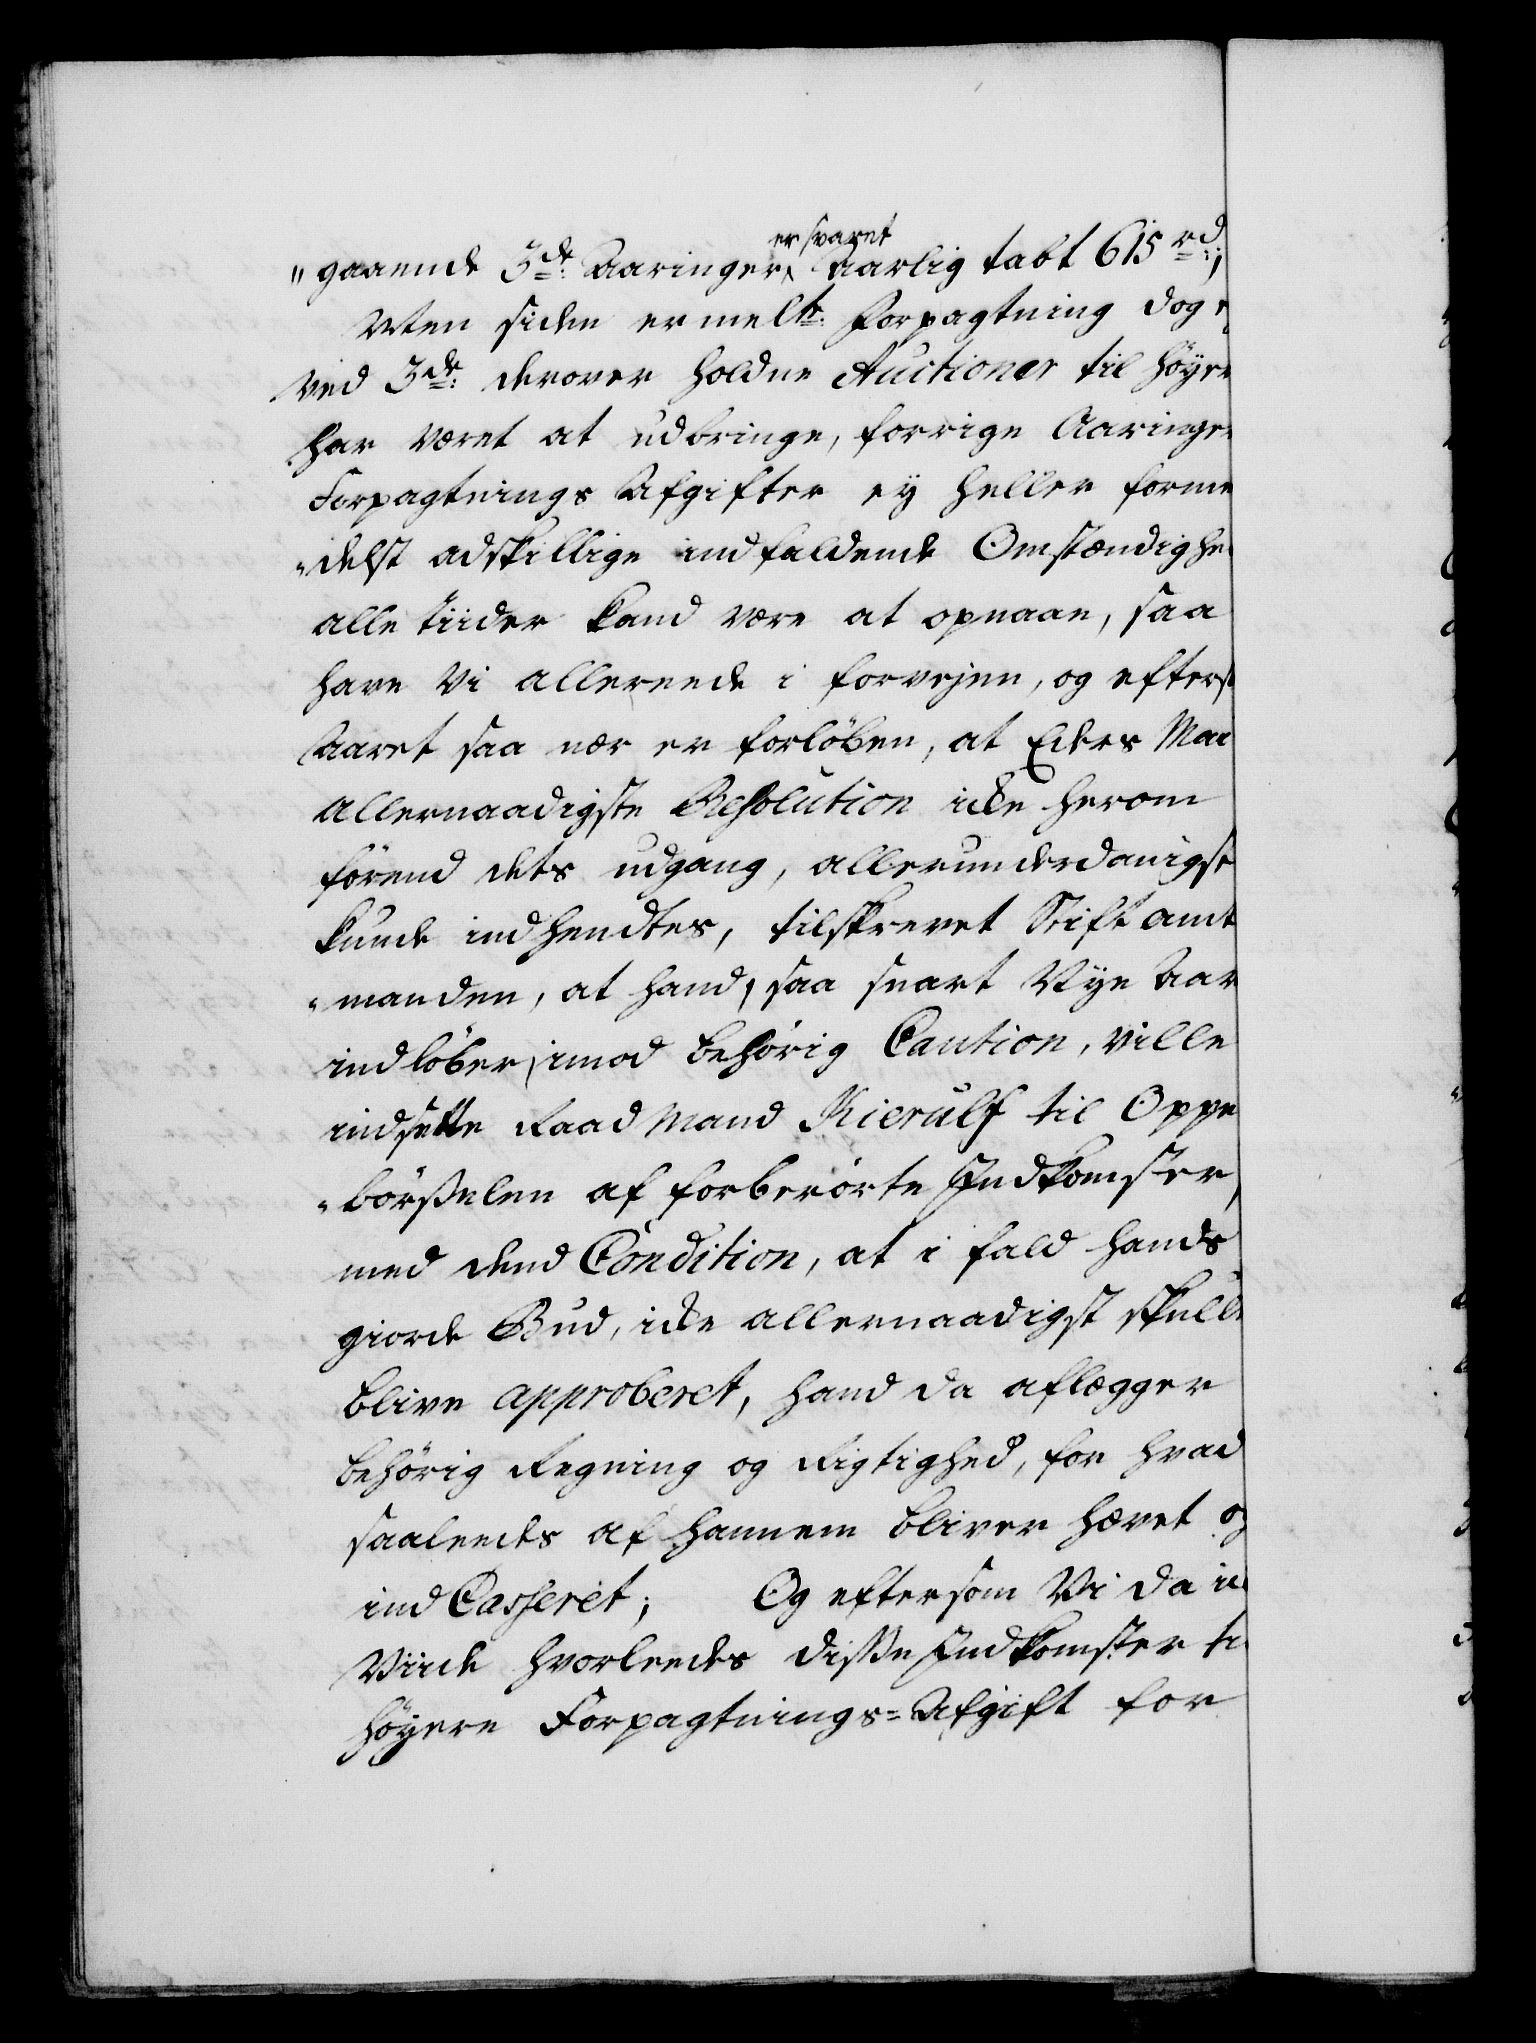 er svaret
"gaaende 3de: Aaringer, Aarlig tabt 615 rd:;
Men siden ermelte: Forpagtning dog
ved 3de: derover holdne Auctioner til höyre
har været at udbringe, forrige Aaringe
Forpagtnings Afgifter ey heller forme
"delst adskillige indfaldende Omstændighe
alle tiider kand være at opnaae, saa
have Vi allereede i forvejen, og efters
Aaret saa nær er forløben, at Eders Ma
allernaadigste Resolution icke herom
förend dets udgang, allerunderdanigst
kunde indhendtes, tilskrevet Stiftamt
"manden, at hand, saa snart Nye Aar
indlöber, imod behörig Caution, ville
indsette Raadmand Kierulf til Oppe
"börßelen af forberörte Indkomster,
med dend Condition, at i fald hands
giorde Bud, icke allernaadigst skulle
blive approberet, hand da aflegger
behörig Regning og Rigtighed, for hvad
saaleedes af hannem bliver hævet og
ind Casseret; Og eftersom Vi da
Viide hvorleedes disse Indkomster
höyere Forpagtnings-Afgift for